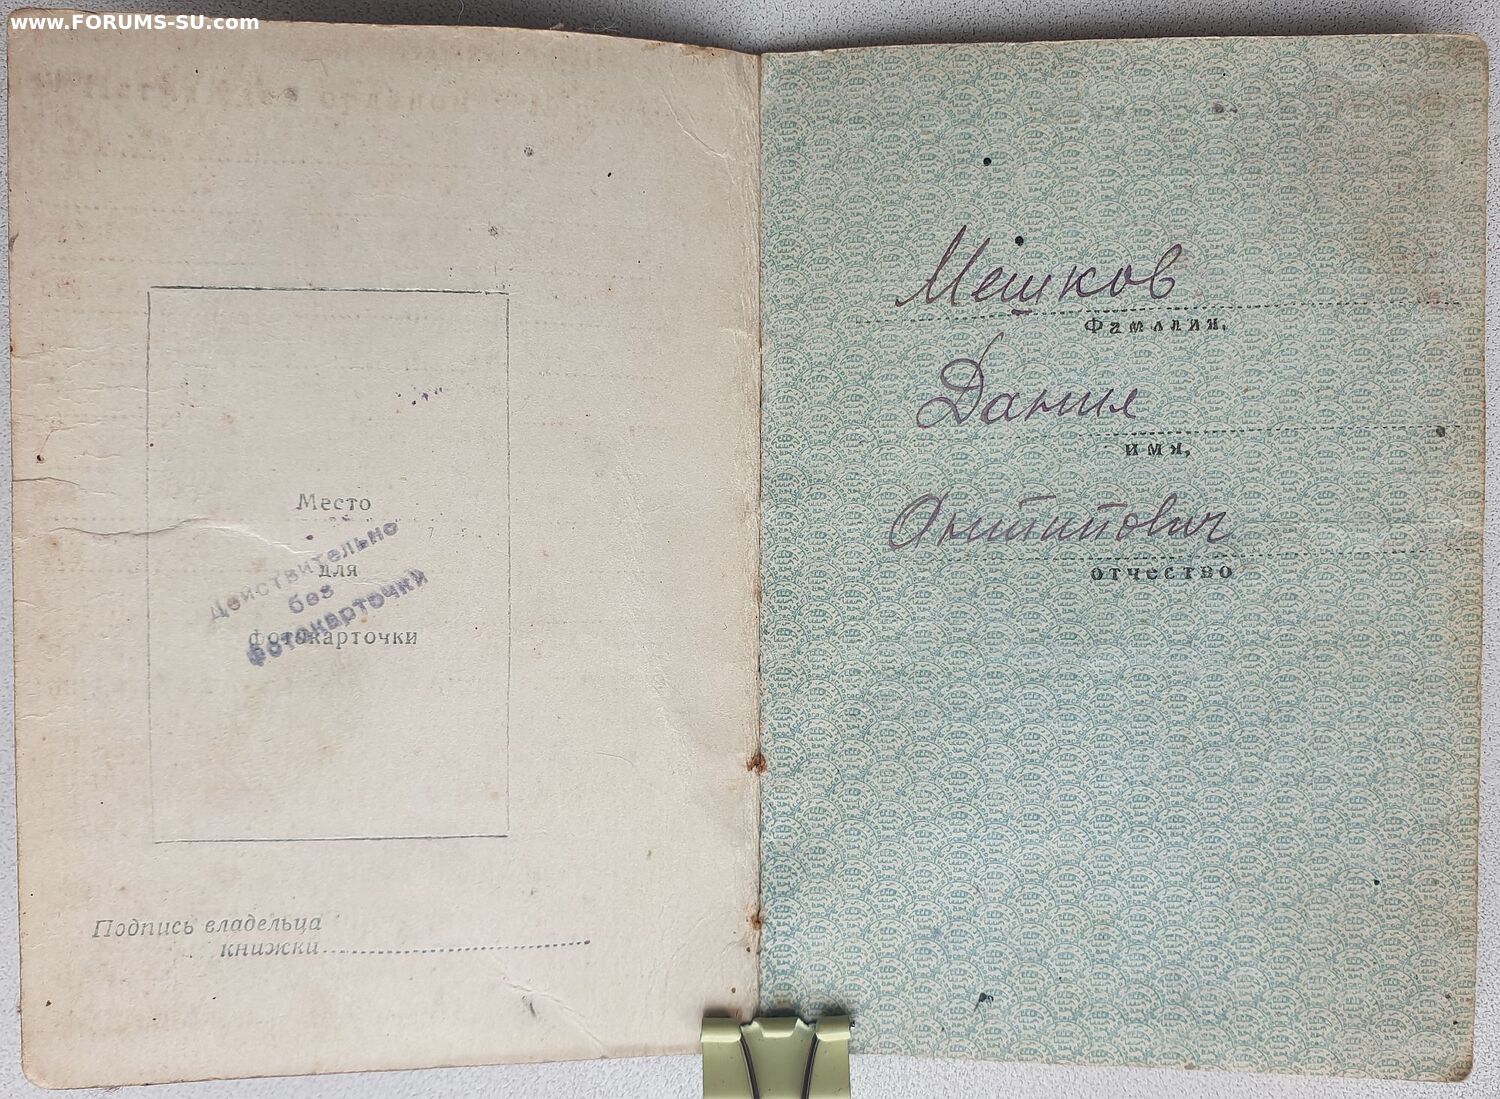 www.FORUMS-SU.com
Место
для
фотокарточки
Действительно
без
фотокарточки
Подпись владельца
книжки
Мешков
Фамилия,
Данил
имя,
Антипович
отчество